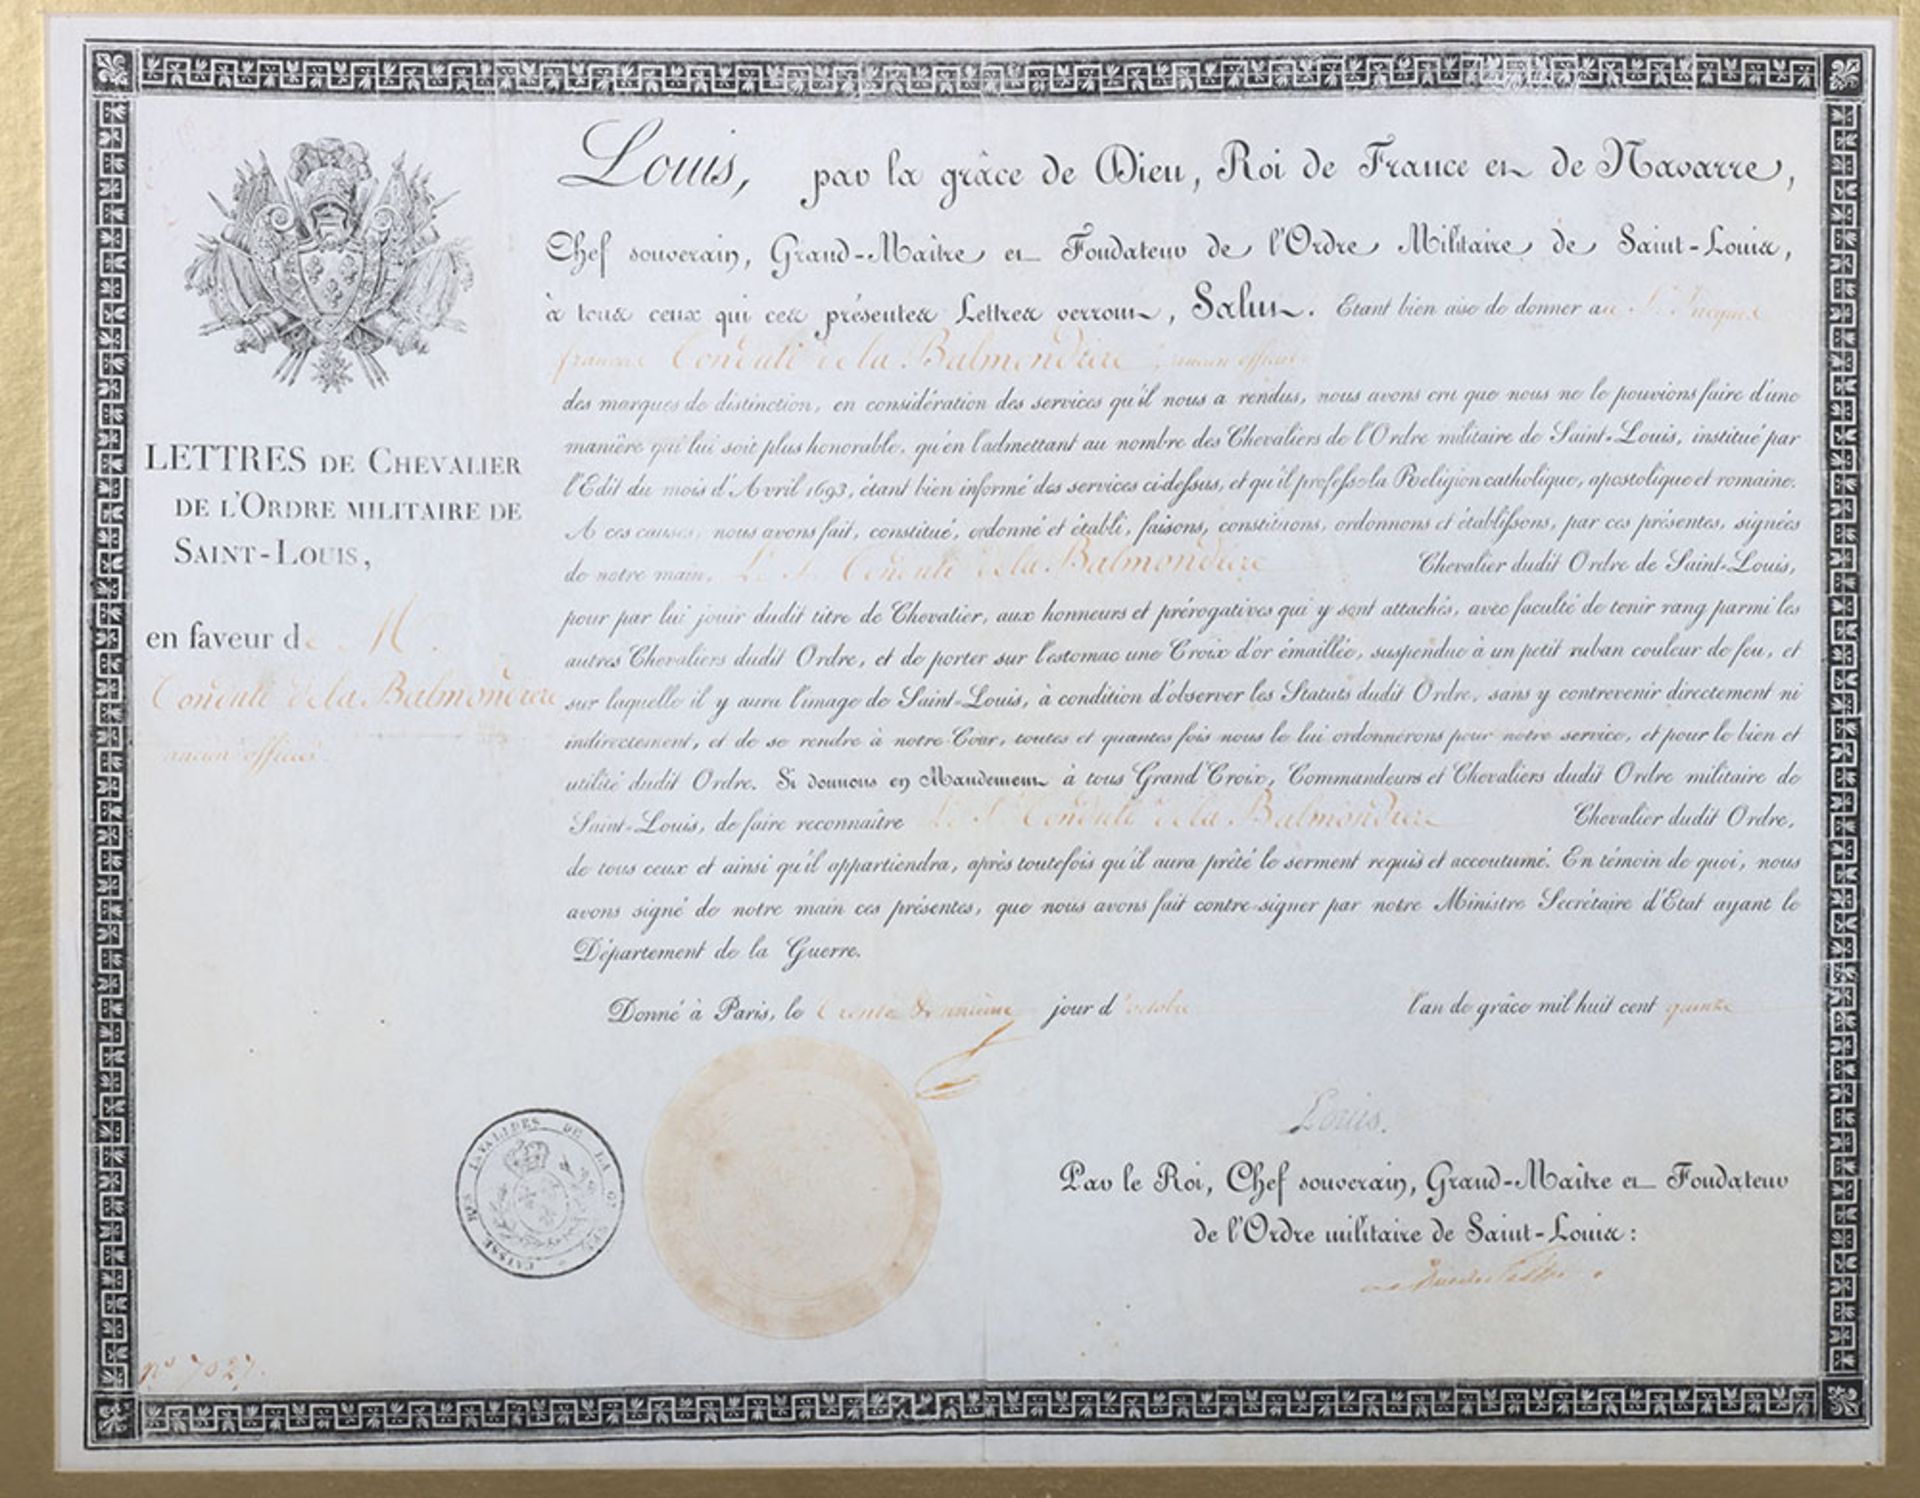 Louis, par la grâce de Dieu, Roi de France et de Navarre,
Chef souverain, Grand-Maître et Fondateur de l'Ordre Militaire de Saint-Louis,
à tous ceux qui ces présentes Lettres verront, Salut. Etant bien aise de donner au Sr. Jacques
françois de la Balmondiere, ancien officier
des marques de distinction, en considération des services qu'il nous a rendus, nous avons cru que nous ne le pouvions faire d'une
manière qui lui soit plus honorable, qu'en l'admettant au nombre des Chevaliers de l'Ordre militaire de Saint-Louis, institué par
l'Edit du mois d'Avril 1693, étant bien informé des services ci-dessus, et qu'il professe la Religion catholique, apostolique et romaine.
A ces causes, nous avons fait, constitué, ordonné et établi, faisons, constituons, ordonnons et établissons, par ces présentes, signées
de notre main, Le Sr. de la Balmondiere Chevalier dudit Ordre de Saint-Louis,
pour par lui jouir dudit titre de Chevalier, aux honneurs et prérogatives qui y sont attachés, avec faculté de tenir rang parmi les
autres Chevaliers dudit Ordre, et de porter sur l'estomac une Croix d'or émaillée, suspendue à un petit ruban couleur de feu, et
sur laquelle il y aura l'image de Saint-Louis, à condition d'observer les Statuts dudit Ordre, sans y contrevenir directement ni
indirectement, et de se rendre à notre Cour, toutes et quantes fois nous le lui ordonnerons pour notre service, et pour le bien et
utilité dudit Ordre. Si donnons en Mandement à tous Grand'Croix, Commandeurs et Chevaliers dudit Ordre militaire de
Saint-Louis, de faire reconnaître Le Sr. de la Balmondiere Chevalier dudit Ordre,
de tous ceux et ainsi qu'il appartiendra, après toutefois qu'il aura prêté le serment requis et accoutumé. En témoin de quoi, nous
avons signé de notre main ces présentes, que nous avons fait contre-signer par notre Ministre Secrétaire d'Etat ayant le
Département de la Guerre.
Donné à Paris, le trente jour d'octobre l'an de grâce mil huit cent quinze
Louis.
Par le Roi, Chef souverain, Grand-Maître et Fondateur
de l'Ordre militaire de Saint-Louis:
LETTRES DE CHEVALIER
DE L'ORDRE MILITAIRE DE
SAINT-LOUIS,
en faveur de M.
de la Balmondiere
ancien officier.
CAISSE DES INVALIDES DE LA GUERRE
no. 7027.